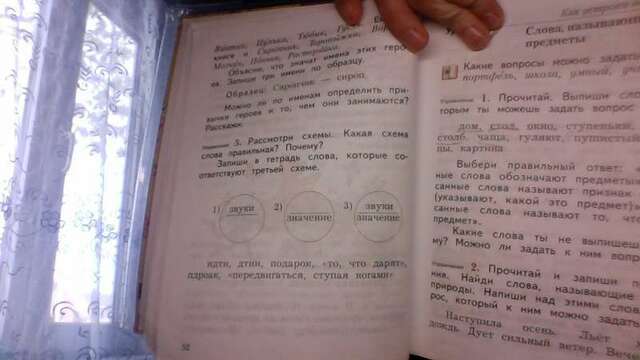 книге и Сиропчик, Торопыжка,
Объясни, что значат имена этих геро-
ев. Запиши три имени по образцу.
Образец: Сиропчик — сироп.
Можно ли по именам определить при-
вычки героев и то, чем они занимаются?
Расскажи.
Упражнение 3. Рассмотри схемы. Какая схема
слова правильная? Почему?
Запиши в тетрадь слова, которые со-
ответствуют третьей схеме.
1) звуки 2) значение 3) звуки значение
идти, дтии, подарок, «то, что дарят»,
пдроак, «передвигаться, ступая ногами»
52
Как устроен
Слова, называющие
предметы
Какие вопросы можно задать
портфель, школа, умный,
Упражнение 1. Прочитай. Выпиши сло
торым ты можешь задать вопрос
дом, стол, окно, ступеньки,
столб, чаща, гуляют, пушистый
ны, картина
Выбери правильный ответ: «
ные слова обозначают предметы
санные слова называют признак
(указывают, какой это предмет)»
санные слова называют то, что
предмет».
Какие слова ты не выпишешь
му? Можно ли задать к ним вопр
Упражнение 2. Прочитай и запиши п
ния. Найди слова, называющие
природы. Напиши над этими слова
рос, который к ним можно задать
Наступила осень. Льёт
дождь Дует сильный ветер.